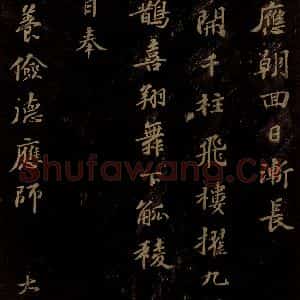 應朝回日漸長
開千柱飛樓擢九
鵲喜翔舞下觚稜
自奉
養儉德應師 大
Shufawang.Cn